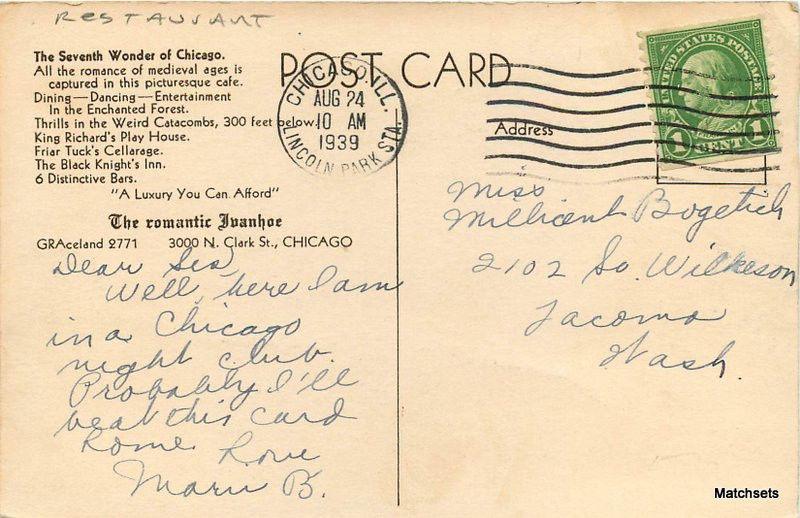 RESTAURANT
The Seventh Wonder of Chicago.
All the romance of medieval ages is
captured in this picturesque cafe.
Dining—Dancing—Entertainment
In the Enchanted Forest.
Thrills in the Weird Catacombs, 300 feet below.
King Richard's Play House.
Friar Tuck's Cellarage.
The Black Knight's Inn.
6 Distinctive Bars.
"A Luxury You Can Afford"
The romantic Ivanhoe
GRAceland 2771 3000 N. Clark St., CHICAGO
Dear Sis,
Well, here I am
in a Chicago
night club.
Probably I'll
beat this card
home.
Love
Marie B.
POST CARD
CHICAGO, ILL.
AUG 24
10 AM
1939
LINCOLN PARK STA.
UNITED STATES POSTAGE
1 CENT 1
Address
Miss
Millicent Bogetich
2102 So. Wilkeson
Tacoma
Wash.
Matchsets